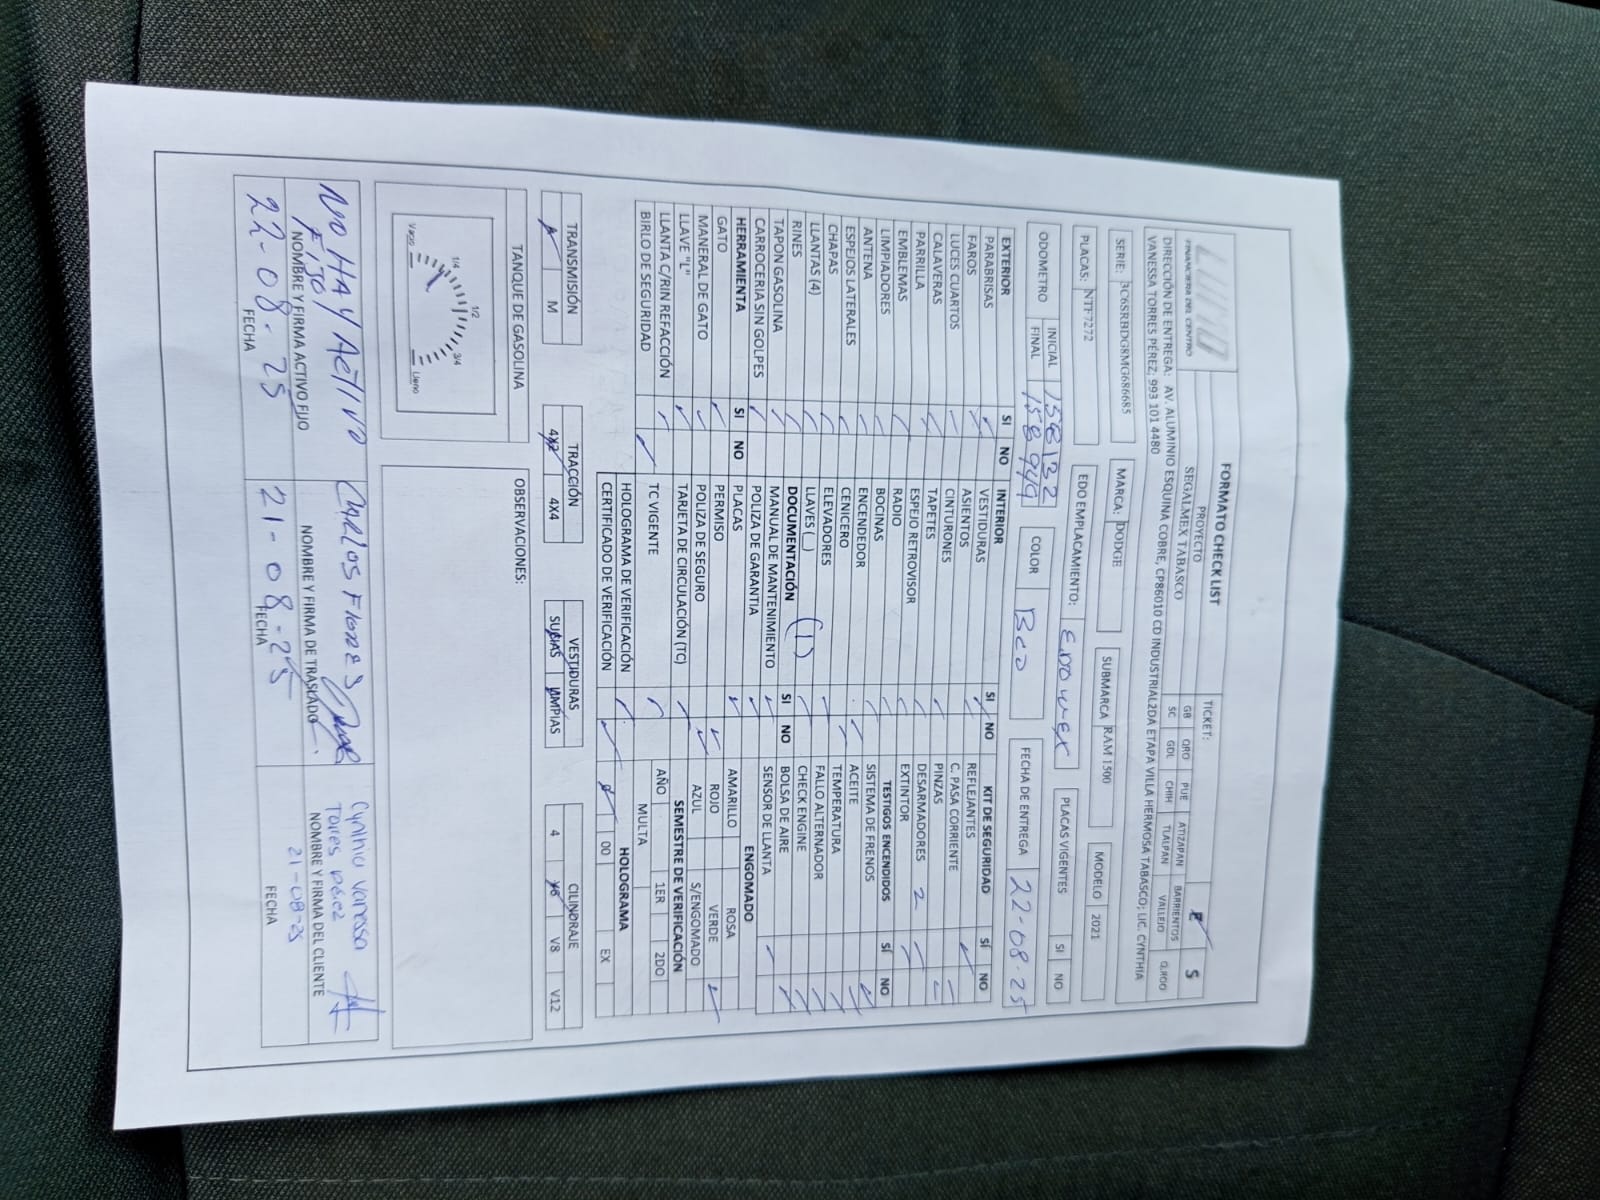 FORMATO CHECK LIST
LUMO
FINANCIERA DEL CENTRO
PROYECTO
SEGALMEX TABASCO
TICKET:
E S
GB QRO PUE ATIZAPAN BARRIENTOS Q.ROO
SC GDL CHIH TLALPAN VALLEJO
DIRECCIÓN DE ENTREGA: AV. ALUMINIO ESQUINA COBRE, CP86010 CD INDUSTRIAL2DA ETAPA VILLA HERMOSA TABASCO; LIC. CYNTHIA
VANESSA TORRES PÉREZ; 993 101 4480
SERIE: 3C6SRBDG8MG686685 MARCA: DODGE SUBMARCA RAM 1500 MODELO 2021
PLACAS: NTF7272 EDO EMPLACAMIENTO: EDO MEX PLACAS VIGENTES SI NO
ODOMETRO INICIAL 158132 COLOR BCO FECHA DE ENTREGA 22-08-25
FINAL 158949
EXTERIOR SI NO INTERIOR SI NO KIT DE SEGURIDAD SÍ NO
PARABRISAS VESTIDURAS REFLEJANTES
FAROS ASIENTOS C. PASA CORRIENTE
LUCES CUARTOS CINTURONES PINZAS
CALAVERAS TAPETES DESARMADORES 2
PARRILLA ESPEJO RETROVISOR EXTINTOR
EMBLEMAS RADIO TESTIGOS ENCENDIDOS SÍ NO
LIMPIADORES BOCINAS SISTEMA DE FRENOS
ANTENA ENCENDEDOR ACEITE
ESPEJOS LATERALES CENICERO TEMPERATURA
CHAPAS ELEVADORES FALLO ALTERNADOR
LLANTAS (4) LLAVES ( ) (1) CHECK ENGINE
RINES DOCUMENTACIÓN SI NO BOLSA DE AIRE
TAPON GASOLINA MANUAL DE MANTENIMIENTO SENSOR DE LLANTA
CARROCERIA SIN GOLPES POLIZA DE GARANTIA ENGOMADO
HERRAMIENTA SI NO PLACAS AMARILLO ROSA
GATO PERMISO ROJO VERDE
MANERAL DE GATO POLIZA DE SEGURO AZUL S/ENGOMADO
LLAVE "L" TARJETA DE CIRCULACIÓN (TC) SEMESTRE DE VERIFICACIÓN
LLANTA C/RIN REFACCIÓN TC VIGENTE AÑO 1ER 2DO
BIRLO DE SEGURIDAD MULTA
HOLOGRAMA DE VERIFICACIÓN HOLOGRAMA
CERTIFICADO DE VERIFICACIÓN 00 EX
TRANSMISIÓN TRACCIÓN VESTIDURAS CILINDRAJE
A M 4X2 4X4 SUCIAS LIMPIAS 4 V6 V8 V12
TANQUE DE GASOLINA
Vacio 1/4 1/2 3/4 Lleno
OBSERVACIONES:
NO HAY ACTIVO
FIJO
NOMBRE Y FIRMA ACTIVO FIJO
22-08-25
FECHA
CARLOS FLORES
NOMBRE Y FIRMA DE TRASLADO
21-08-25
FECHA
Cynthia Vanessa
Torres Pérez
NOMBRE Y FIRMA DEL CLIENTE
21-08-25
FECHA